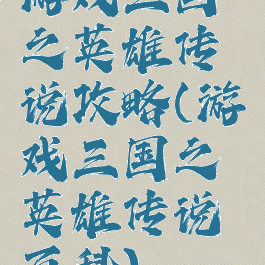 游戏三国
之英雄传
说攻略(游
戏三国之
英雄传说
百科)